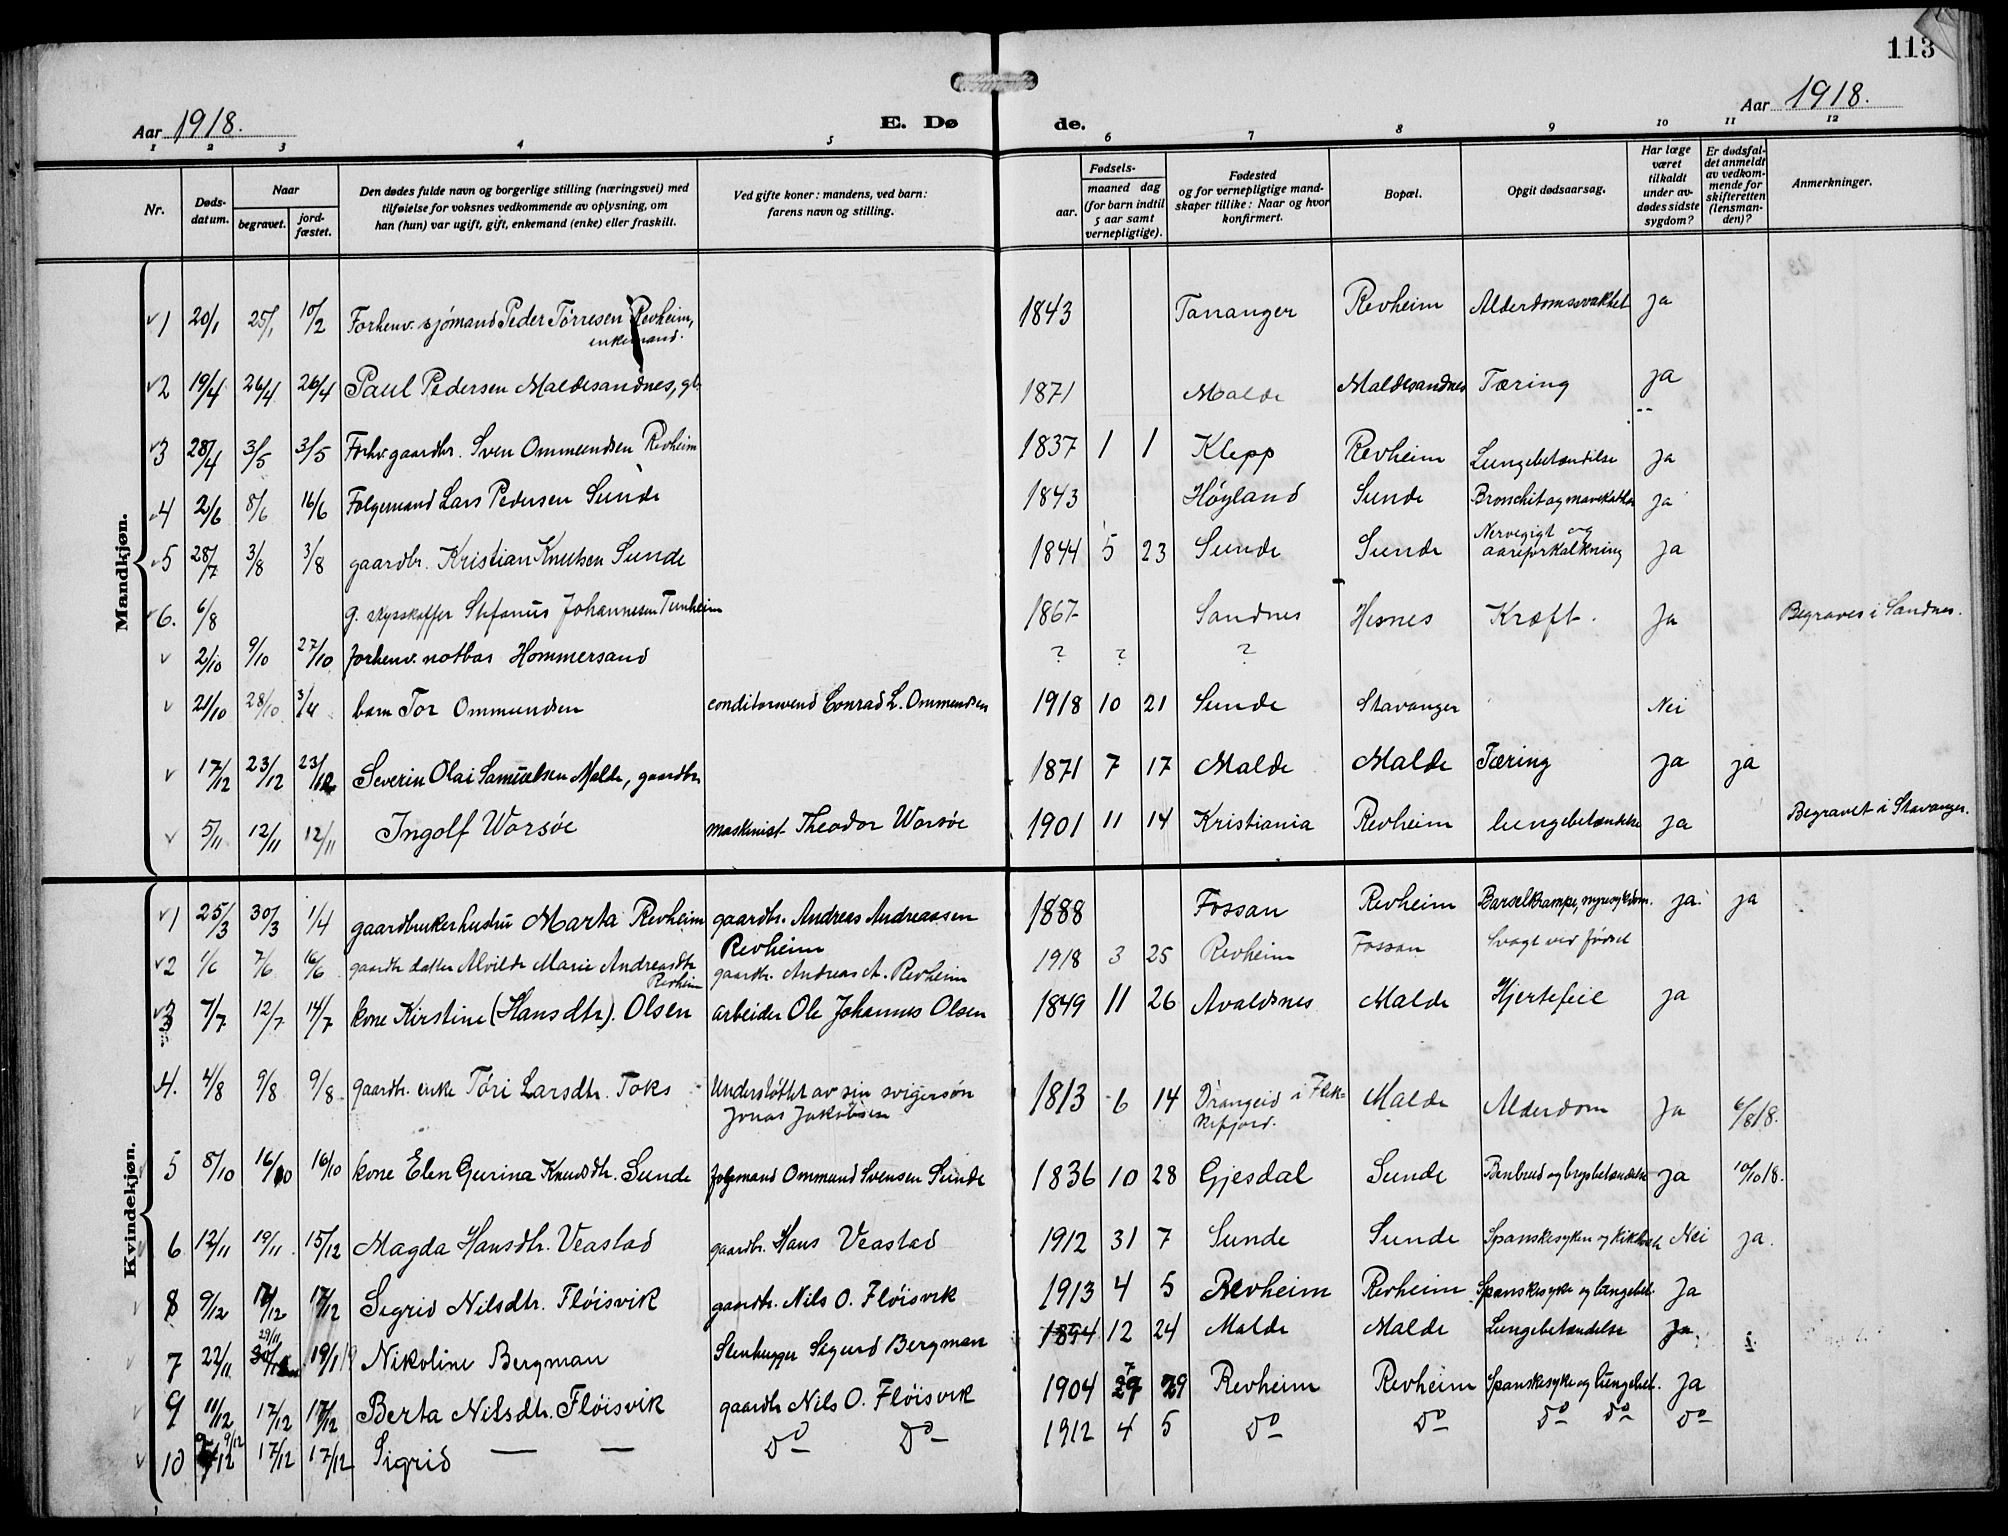 113
Aar 1918.
E. Døde.
Aar 1918.
1 2 3 4 5 6 7 8 9 10 11 12
Nr.
Døds-
datum.
Naar
begravet.
jord-
fæstet.
Den dødes fulde navn og borgerlige stilling (næringsvei) med
tilføielse for voksnes vedkommende av oplysning, om
han (hun) var ugift, gift, enkemand (enke) eller fraskilt.
Ved gifte koner: mandens, ved barn:
farens navn og stilling.
Fødsels-
aar.
maaned dag
(for barn indtil
5 aar samt
vernepligtige).
Fødested
og for vernepligtige mand-
skaper tillike: Naar og hvor
konfirmert.
Bopæl.
Opgit dødsaarsag.
Har læge
været
tilkaldt
under av-
dødes sidste
sygdom?
Er dødsfal-
det anmeldt
av vedkom-
mende for
skifteretten
(lensman-
den)?
Anmerkninger.
Mandkjøn.
1 20/1 25/1 10/2 Forhenv. sjømand Peder Tørresen Revheim, 1843 Tananger Revheim Alderdomssvakhet ja
enkemand.
2 19/4 26/4 26/4 Paul Pedersen Maldesandnes, gb 1871 Malde Maldesandnes Tæring ja
3 28/4 3/5 3/5 Forhv. gaardbr. Sven Ommundsen Revheim 1837 1 1 Klepp Revheim Lungebetændelse ja
4 2/6 8/6 16/6 Følgemand Lars Pedersen Sunde 1843 Høyland Sunde Bronchit og mavekatar ja
5 28/7 3/8 3/8 gaardbr. Kristian Knutsen Sunde 1844 5 23 Sunde Sunde Nervegigt og
aareforkalkning ja
6. 6/8 g. skysskaffer Stefanus Johannesen Tunheim 1867 Sandnes Hesnes Kræft. Ja Begraves i Sandnes.
2/10 9/10 27/10 forhenv. notbas Hommersand ? ? ?
21/10 28/10 3/11 barn Tor Ommundsen conditorsvend Conrad L. Ommundsen 1918 10 21 Sunde Stavanger Nei
17/12 23/12 23/12 Severin Olai Samuelsen Malde, gaardbr 1871 7 17 Malde Malde Tæring ja ja
5/11 12/11 12/11 Ingolf Worsöe maskinist Theodor Worsöe 1901 11 14 Kristiania Revheim lungebetændelse ja Begravet i Stavanger.
Kvindekjøn.
1 25/3 30/3 1/4 gaardbrukerhustru Marta Revheim gaardbr. Andreas Andreassen
Revheim 1888 Fossan Revheim Barselkrampe, nyresykdom. ja. ja
2 1/6 7/6 16/6 gaardbr datter Alvilde Marie Andreasdtr
Revheim gaardbr. Andreas A. Revheim 1918 3 25 Revheim Fossan Svagt ved fødsel
3 7/7 12/7 14/7 kone Kirstine (Hansdtr). Olsen arbeider Ole Johannes Olsen 1849 11 26 Avaldsnes Malde Hjertefeil ja
4. 4/8 9/8 9/8 gaardbr. enke Töri Larsdtr. Toks Understøttet av sin svigersøn
Jonas Jakobsen 1813 6 14 Drangeid i Flek-
kefjord. Malde Alderdom Ja 6/8 18.
5 8/10 16/10 16/10 kone Elen Gurina Knudsdtr. Sunde folgemand Ommund Svensen Sunde 1836 10 28 Gjesdal Sunde Benbrud og brystbetændelse Ja 10/10 18.
6 12/11 19/11 15/12 Magda Hansdtr. Veastad gaardbr. Hans Veastad 1912 31 7 Sunde Sunde Spanskesyken og kikhoste Nei ja.
8 9/12 17/12 17/12 Sigrid Nilsdtr. Flöisvik gaardbr. Nils O. Flöisvik 1913 4 5 Revheim Revheim Spanskesyke og lungebet. Ja
7 22/11 29/11 Nikoline Bergman Stenhugger Sigurd Bergman 1894 12 24 Malde Malde Lungebetændelse Ja.
9 11/12 17/12 17/12 Berta Nilsdtr. Flöisvik gaardbr Nils O. Flöisvik 1904 7 29 Revheim Revheim Spanskesyke og lungebet. Ja
10 9/12 17/12 17/12 Sigrid — — Do Do 1912 4 5 Do Do Do Do Do